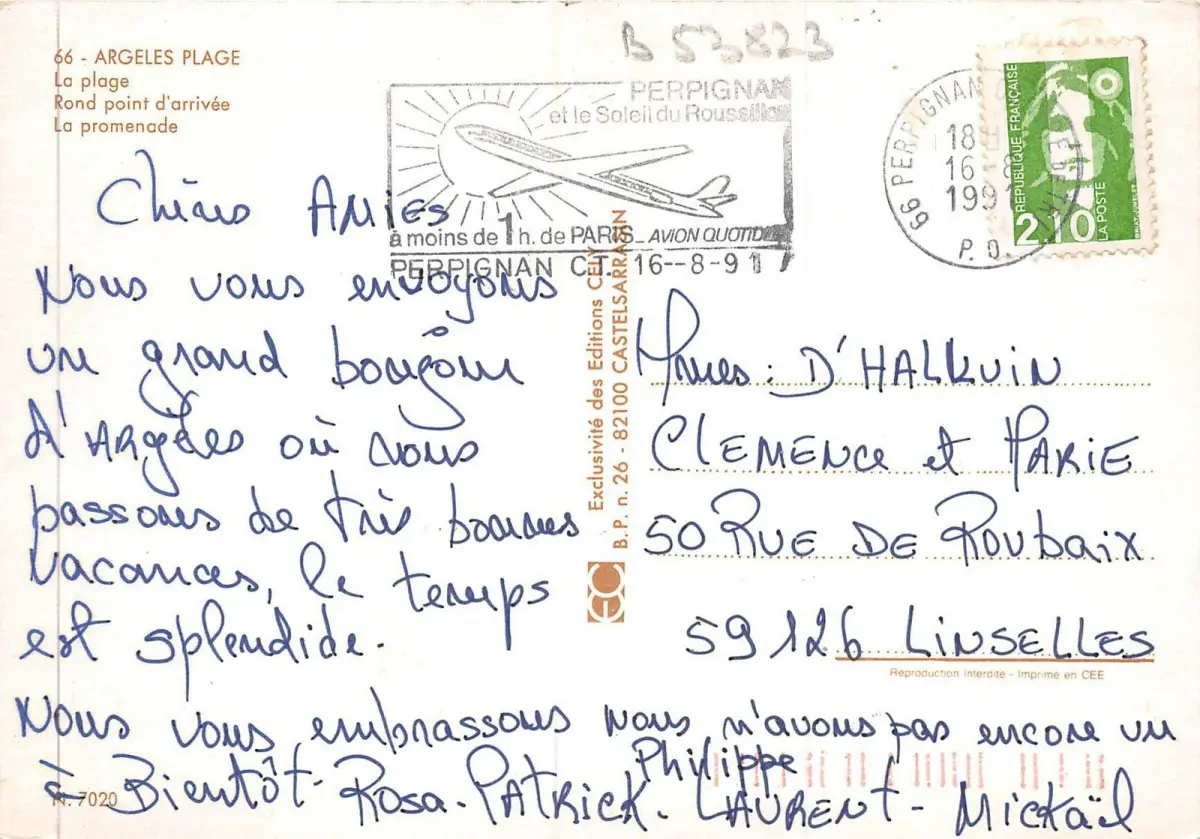 B 53823
66 - ARGELES PLAGE
La plage
Rond point d'arrivée
La promenade
PERPIGNAN
et le Soleil du Roussillon
à moins de 1 h. de PARIS_ AVION QUOTIDIEN
PERPIGNAN C.T. 16--8-91
66 PERPIGNAN
18 H
16 - 8
1991
P. O
REPUBLIQUE FRANÇAISE
2,10
LA POSTE
Chères Amies
Nous vous envoyons
un grand bonjour
d'ARgelès où nous
passons de très bonnes
vacances, le temps
est splendide.
Nous vous embrassons nous n'avons pas encore vu
Philippe
à Bientôt - Rosa - PATRICK. LAURENT - Mickaël
N. 7020
Exclusivité des Editions CELY
B.P. n. 26 - 82100 CASTELSARRASIN
Mmes : D'HALLUIN
CLEMENCE et MARIE
50 RUE DE Roubaix
59126 LINSELLES
Reproduction Interdite - Imprimé en CEE